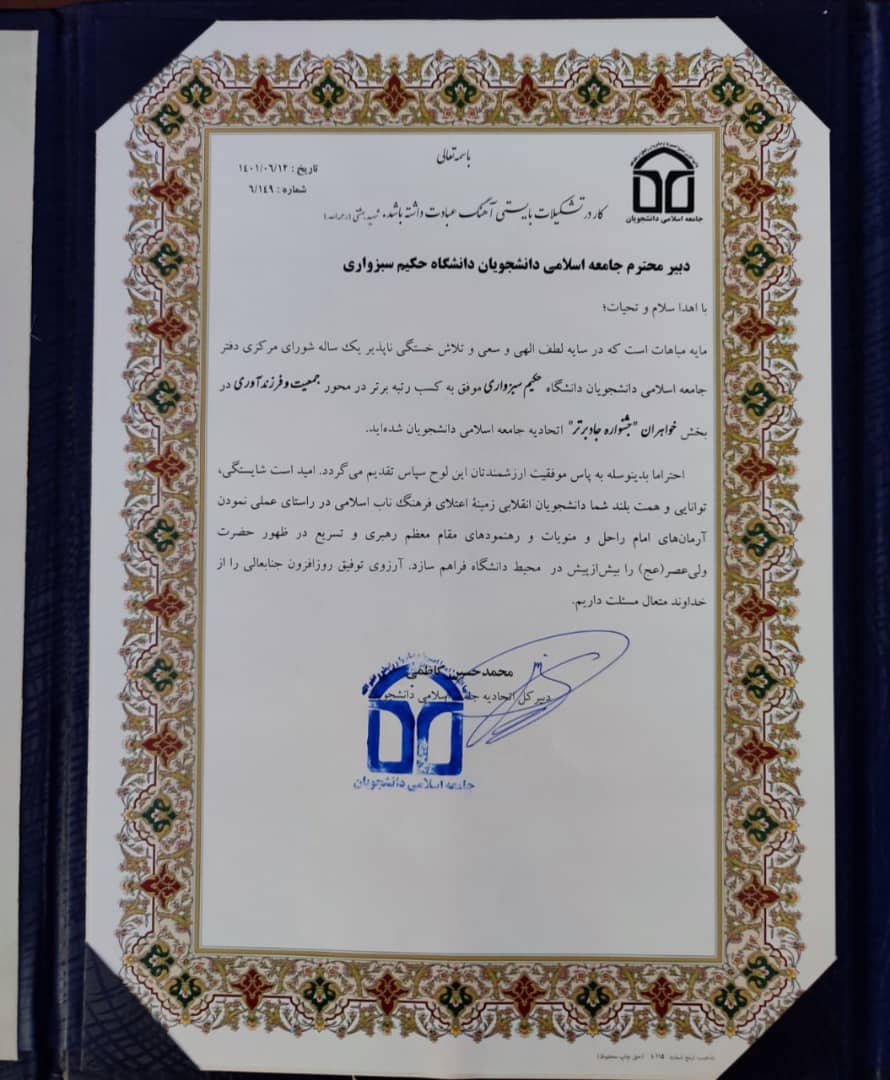 باسمه‌تعالی
تاریخ : ۱۴۰۱/۰۶/۱۲
شماره : ۶/۱۴۹
جامعه اسلامی دانشجویان
کار در تشکیلات بایستی آهنگ عبادت داشته باشد؛ شهید بهشتی (رحمه‌الله)
دبیر محترم جامعه اسلامی دانشجویان دانشگاه حکیم سبزواری
با اهدا سلام و تحیات؛
مایه مباهات است که در سایه لطف الهی و سعی و تلاش خستگی ناپذیر یک ساله شورای مرکزی دفتر
جامعه اسلامی دانشجویان دانشگاه حکیم سبزواری موفق به کسب رتبه برتر در محور جمعیت و فرزندآوری در
بخش خواهران "جشنواره جاد برتر" اتحادیه جامعه اسلامی دانشجویان شده‌اید.
احتراما بدینوسله به پاس موفقیت ارزشمندتان این لوح سپاس تقدیم می‌گردد. امید است شایستگی،
توانایی و همت بلند شما دانشجویان انقلابی زمینهٔ اعتلای فرهنگ ناب اسلامی در راستای عملی نمودن
آرمان‌های امام راحل و منویات و رهنمودهای مقام معظم رهبری و تسریع در ظهور حضرت
ولی‌عصر(عج) را بیش‌ازپیش در محیط دانشگاه فراهم سازد. آرزوی توفیق روزافزون جنابعالی را از
خداوند متعال مسئلت داریم.
محمدحسین کاظمی
دبیر کل اتحادیه جامعه اسلامی دانشجویان
جامعه اسلامی دانشجویان